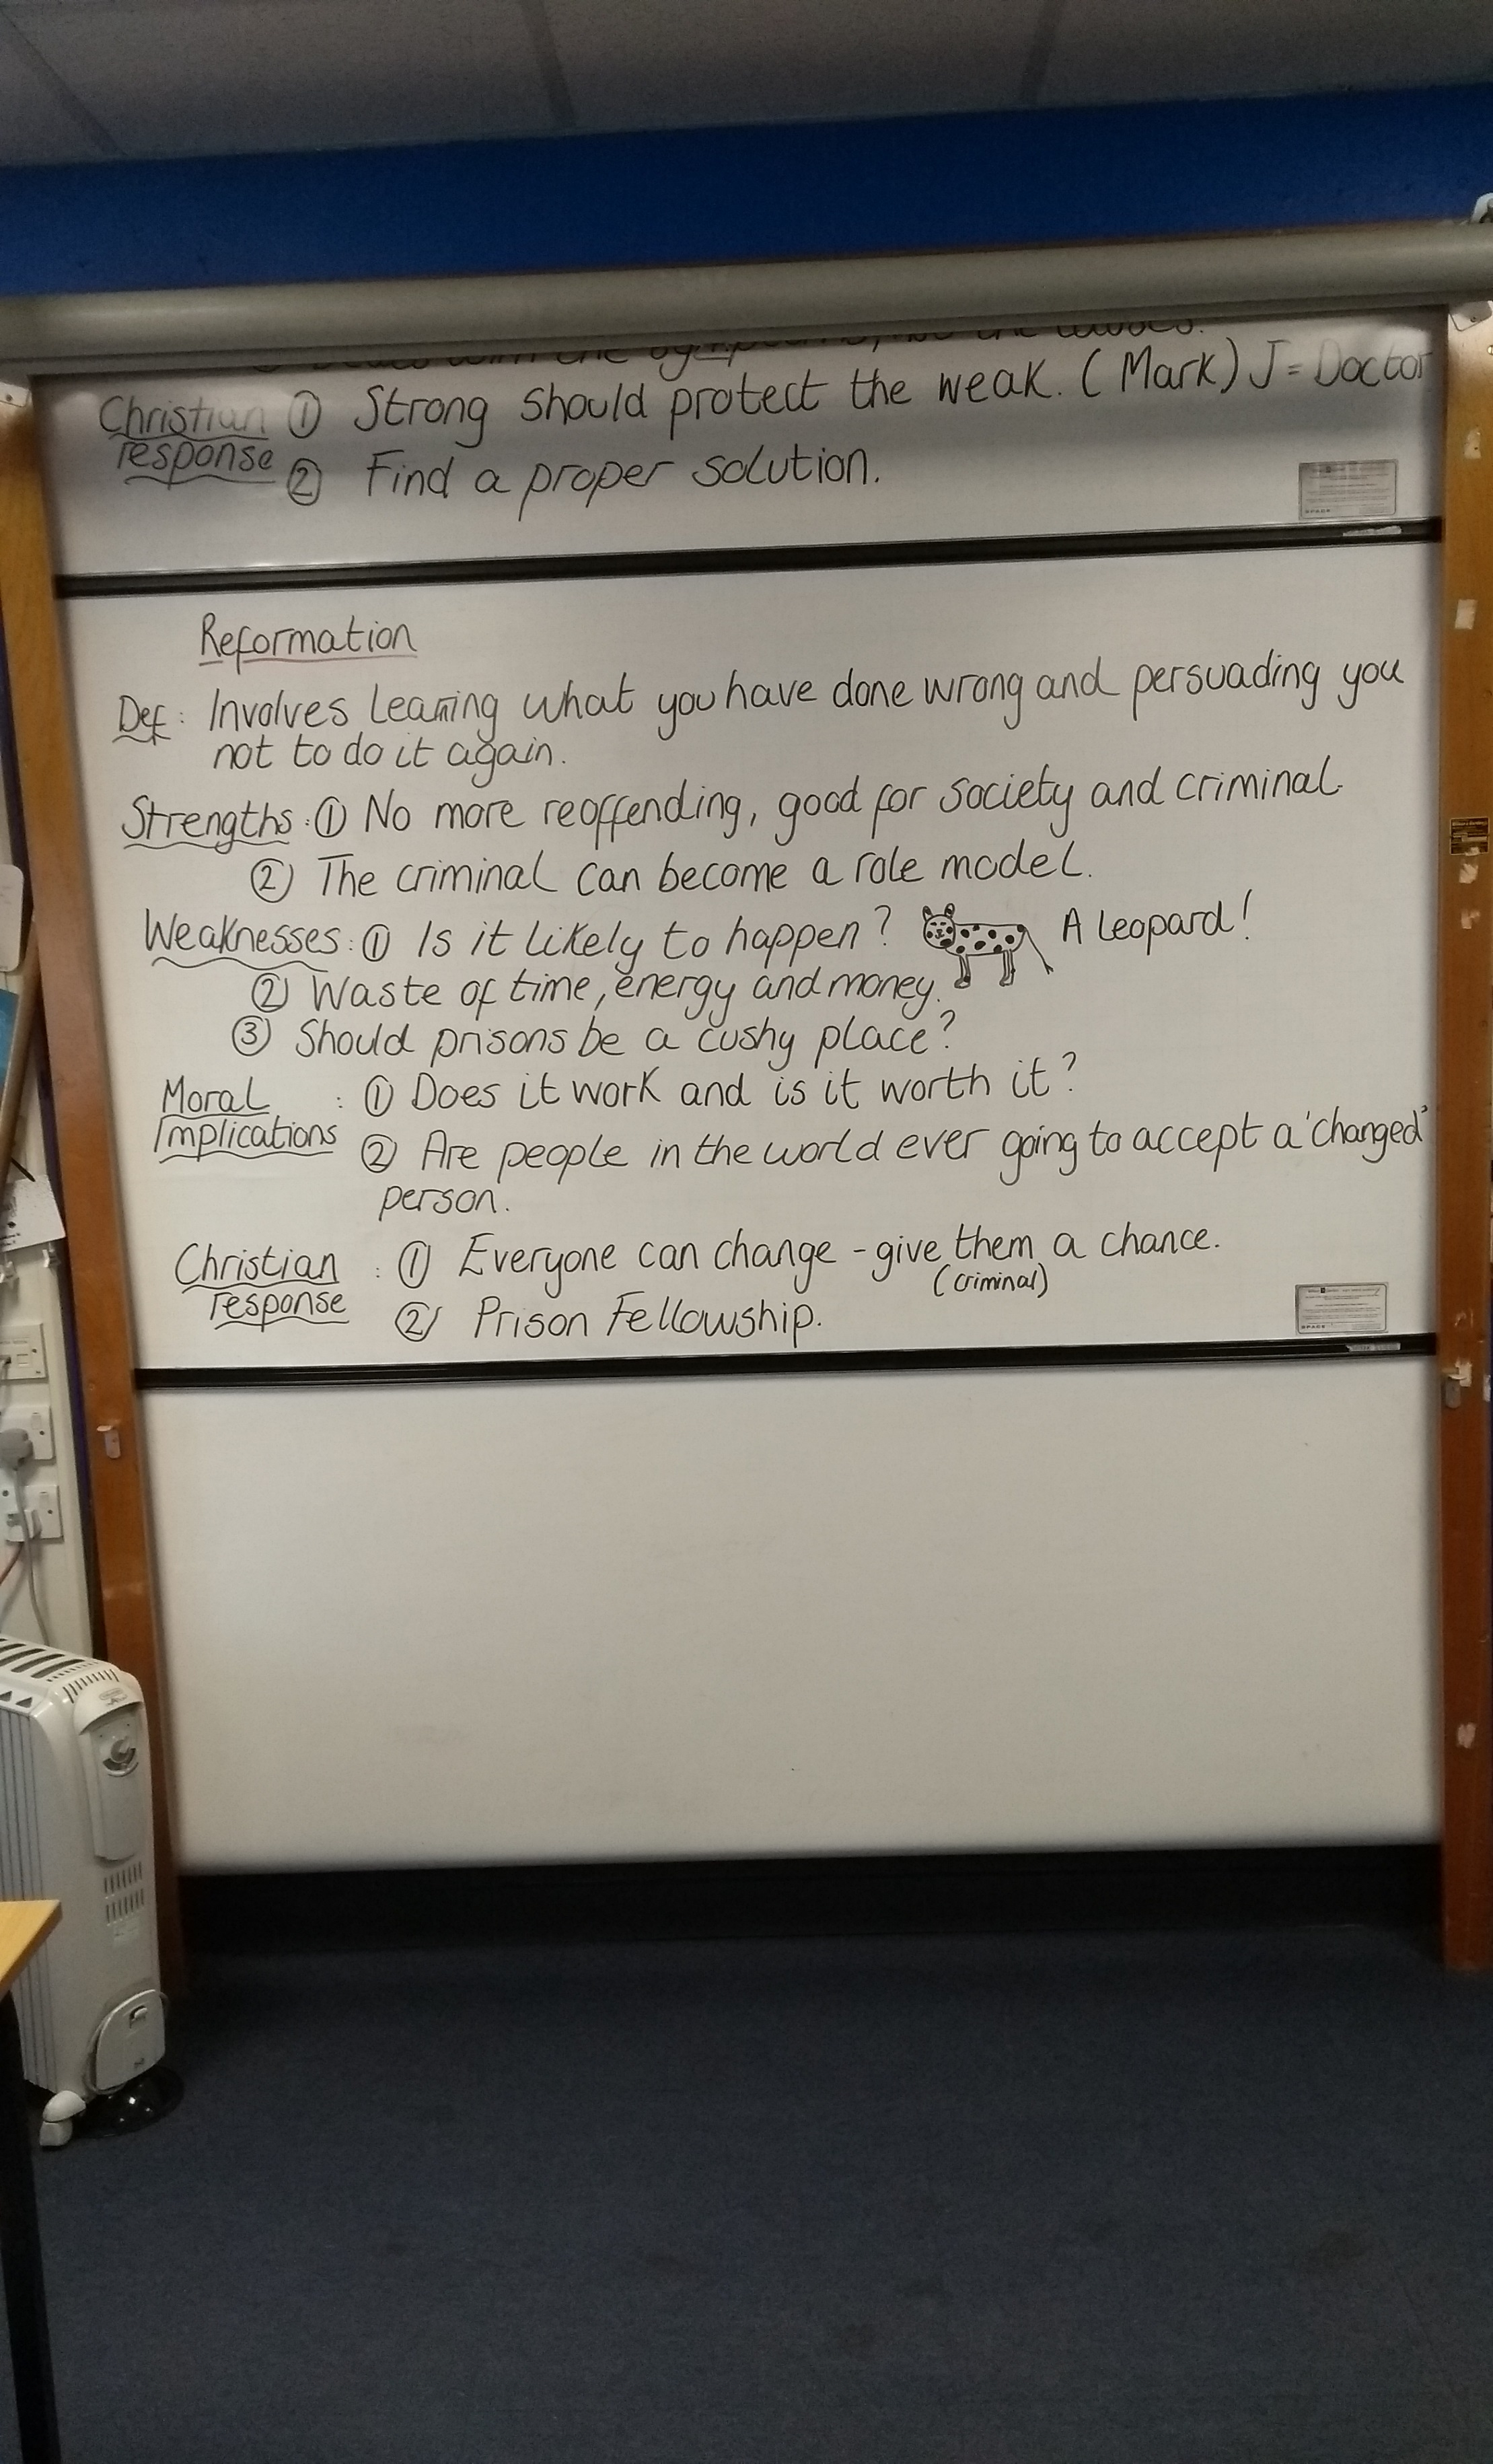 the
Christian ① Strong should protect the weak. (Mark) J = Doctor
response ② Find a proper solution.
SPACE
Reformation
Def: Involves learning what you have done wrong and persuading you
not to do it again.
Strengths: ① No more reoffending, good for society and criminal.
② The criminal can become a role model.
Weaknesses: ① Is it likely to happen? A Leopard!
② Waste of time, energy and money.
③ Should prisons be a cushy place?
Moral : ① Does it work and is it worth it?
Implications ② Are people in the world ever going to accept a 'changed'
person.
Christian : ① Everyone can change - give them a chance.
(criminal)
response ② Prison Fellowship.
SPACE